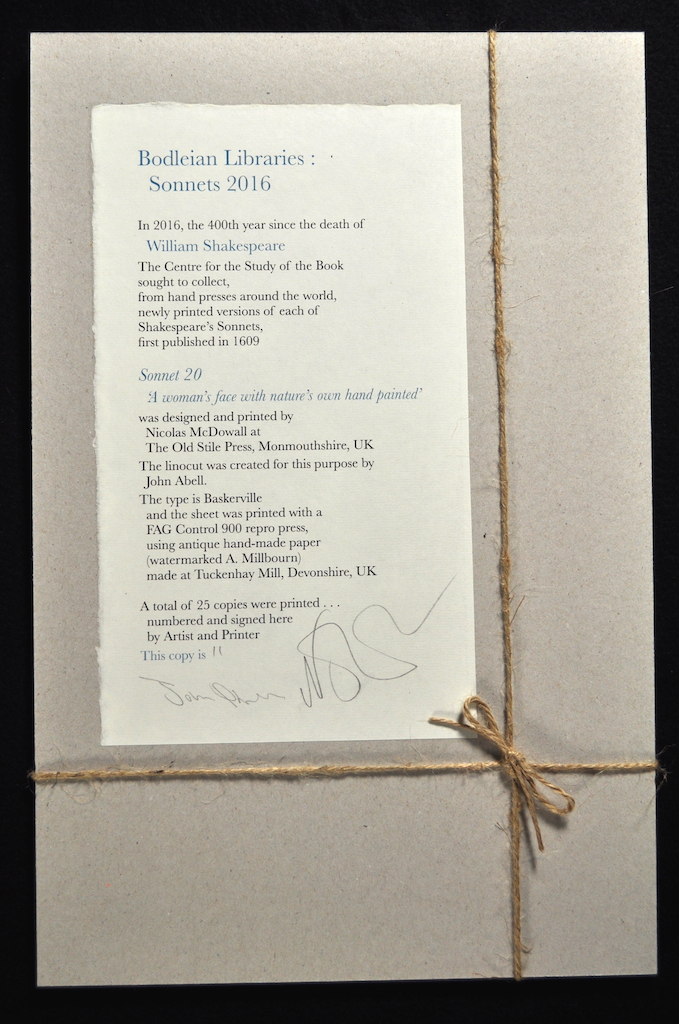 Bodleian Libraries :
Sonnets 2016
In 2016, the 400th year since the death of
William Shakespeare
The Centre for the Study of the Book
sought to collect,
from hand presses around the world,
newly printed versions of each of
Shakespeare's Sonnets,
first published in 1609
Sonnet 20
'A woman's face with nature's own hand painted'
was designed and printed by
Nicolas McDowall at
The Old Stile Press, Monmouthshire, UK
The linocut was created for this purpose by
John Abell.
The type is Baskerville
and the sheet was printed with a
FAG Control 900 repro press,
using antique hand-made paper
(watermarked A. Millbourn)
made at Tuckenhay Mill, Devonshire, UK
A total of 25 copies were printed . . .
numbered and signed here
by Artist and Printer
This copy is 11
John